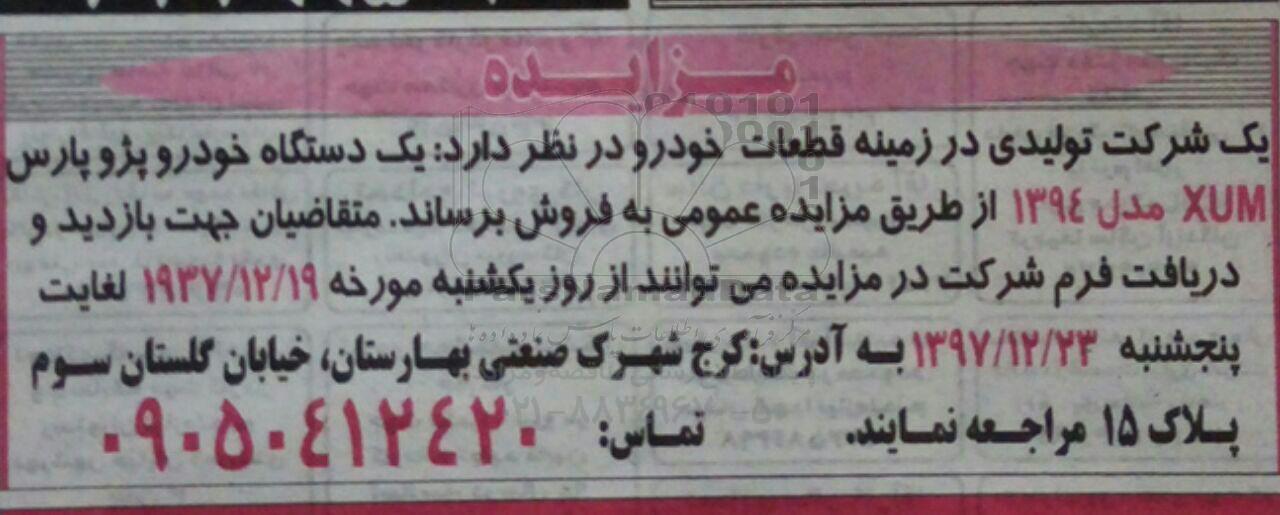 مزایده
یک شرکت تولیدی در زمینه قطعات خودرو در نظر دارد: یک دستگاه خودرو پژو پارس
XUM مدل ۱۳۹٤ از طریق مزایده عمومی به فروش برساند. متقاضیان جهت بازدید و
دریافت فرم شرکت در مزایده می توانند از روز یکشنبه مورخه ۱۹۳۷/۱۲/۱۹ لغایت
پنجشنبه ۱۳۹۷/۱۲/۲۳ به آدرس: کرج شهرک صنعتی بهارستان، خیابان گلستان سوم
پلاک ۱۵ مراجعه نمایند. تماس: ۰۹۰۵۰٤۱۲٤۲۰